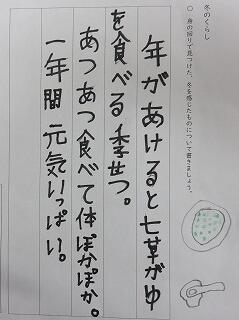 冬のくらし
○ 身の回りで見つけた、冬を感じたものについて書きましょう。
年があけると七草がゆ
を食べる季せつ。
あつあつ食べて体ぽかぽか。
一年間元気いっぱい。